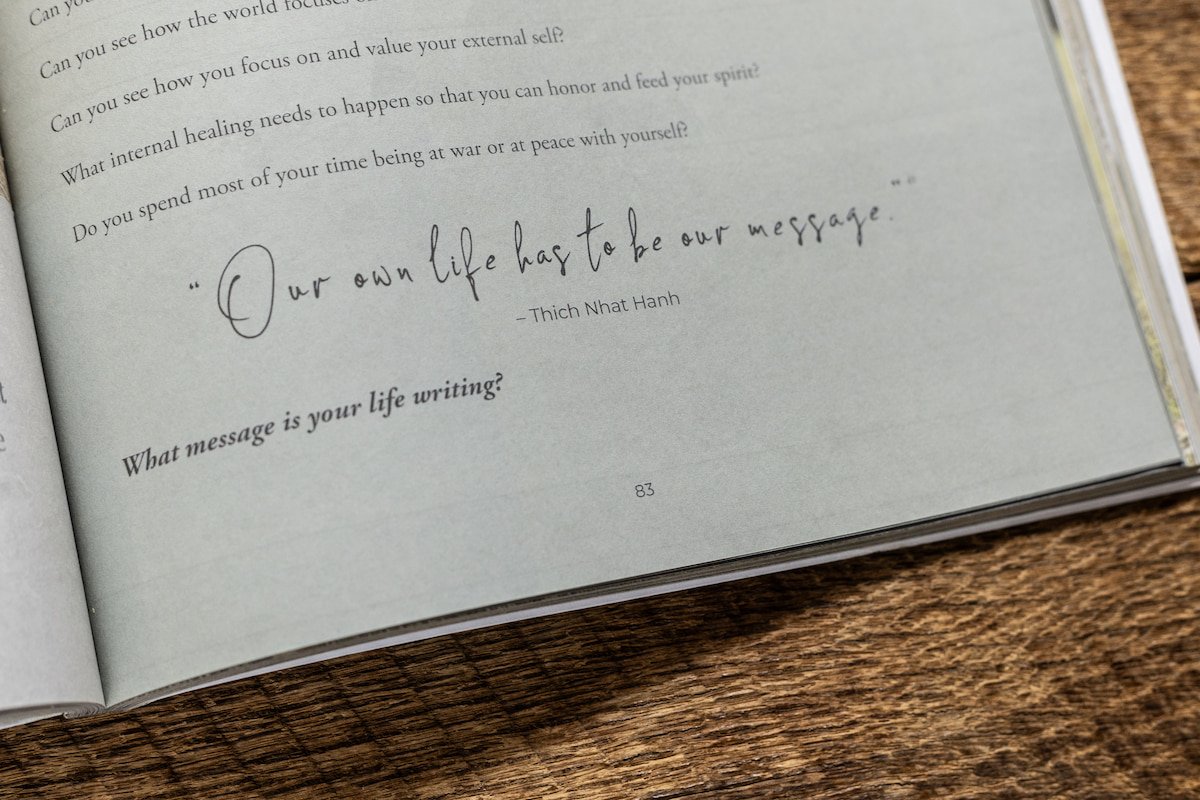 Can you
Can you see how the world focuses
Can you see how you focus on and value your external self?
What internal healing needs to happen so that you can honor and feed your spirit?
Do you spend most of your time being at war or at peace with yourself?
“Our own life has to be our message.”
– Thich Nhat Hanh
What message is your life writing?
83